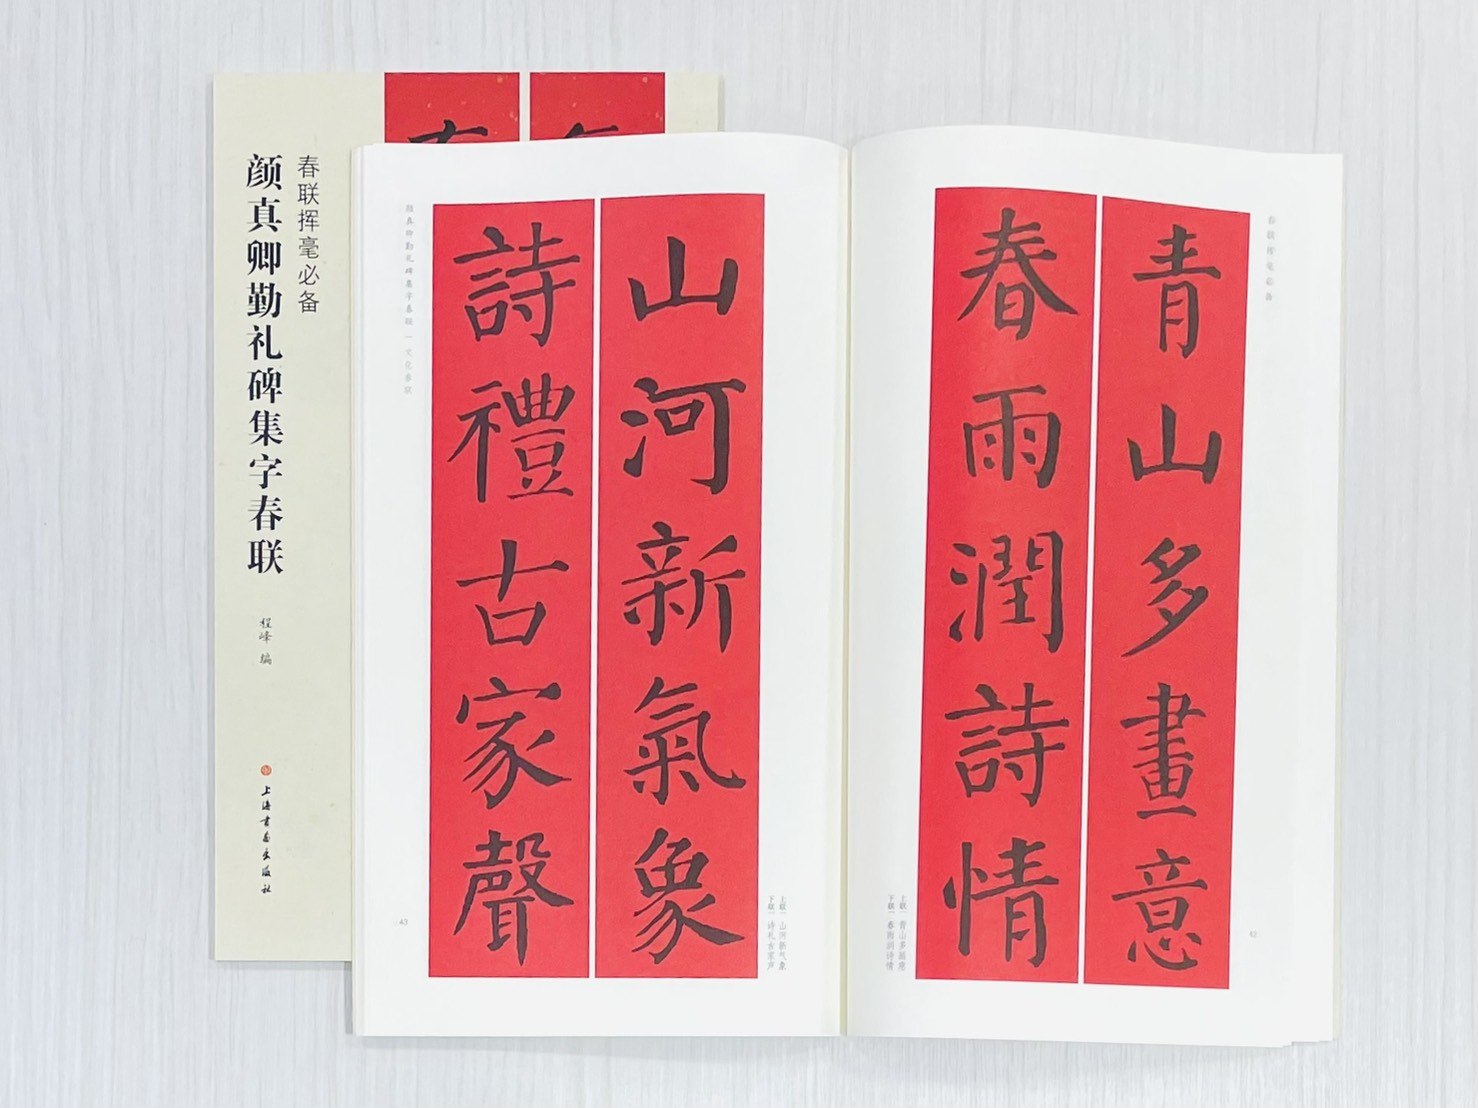 春联挥毫必备
颜真卿勤礼碑集字春联
程峰 编
上海书画出版社
春联挥毫必备
青山多畫意
春雨潤詩情
上联｜青山多画意
下联｜春雨润诗情
42
山河新氣象
詩禮古家聲
上联｜山河新气象
下联｜诗礼古家声
颜真卿勤礼碑集字春联｜文化春联
43